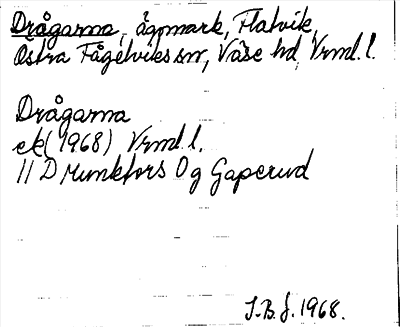 Drågarna, ägomark, Flatvik,
Östra Fågelviks sn, Väse hd, Vrml. l.
Drågarna
ek (1968) Vrml. l.
11 D Munkfors 0 g Gaperud
J.B.J. 1968.